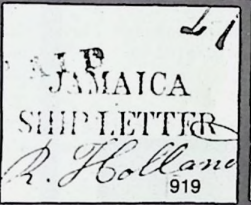 JAMAICA
SHIP LETTER
R. Holland
919